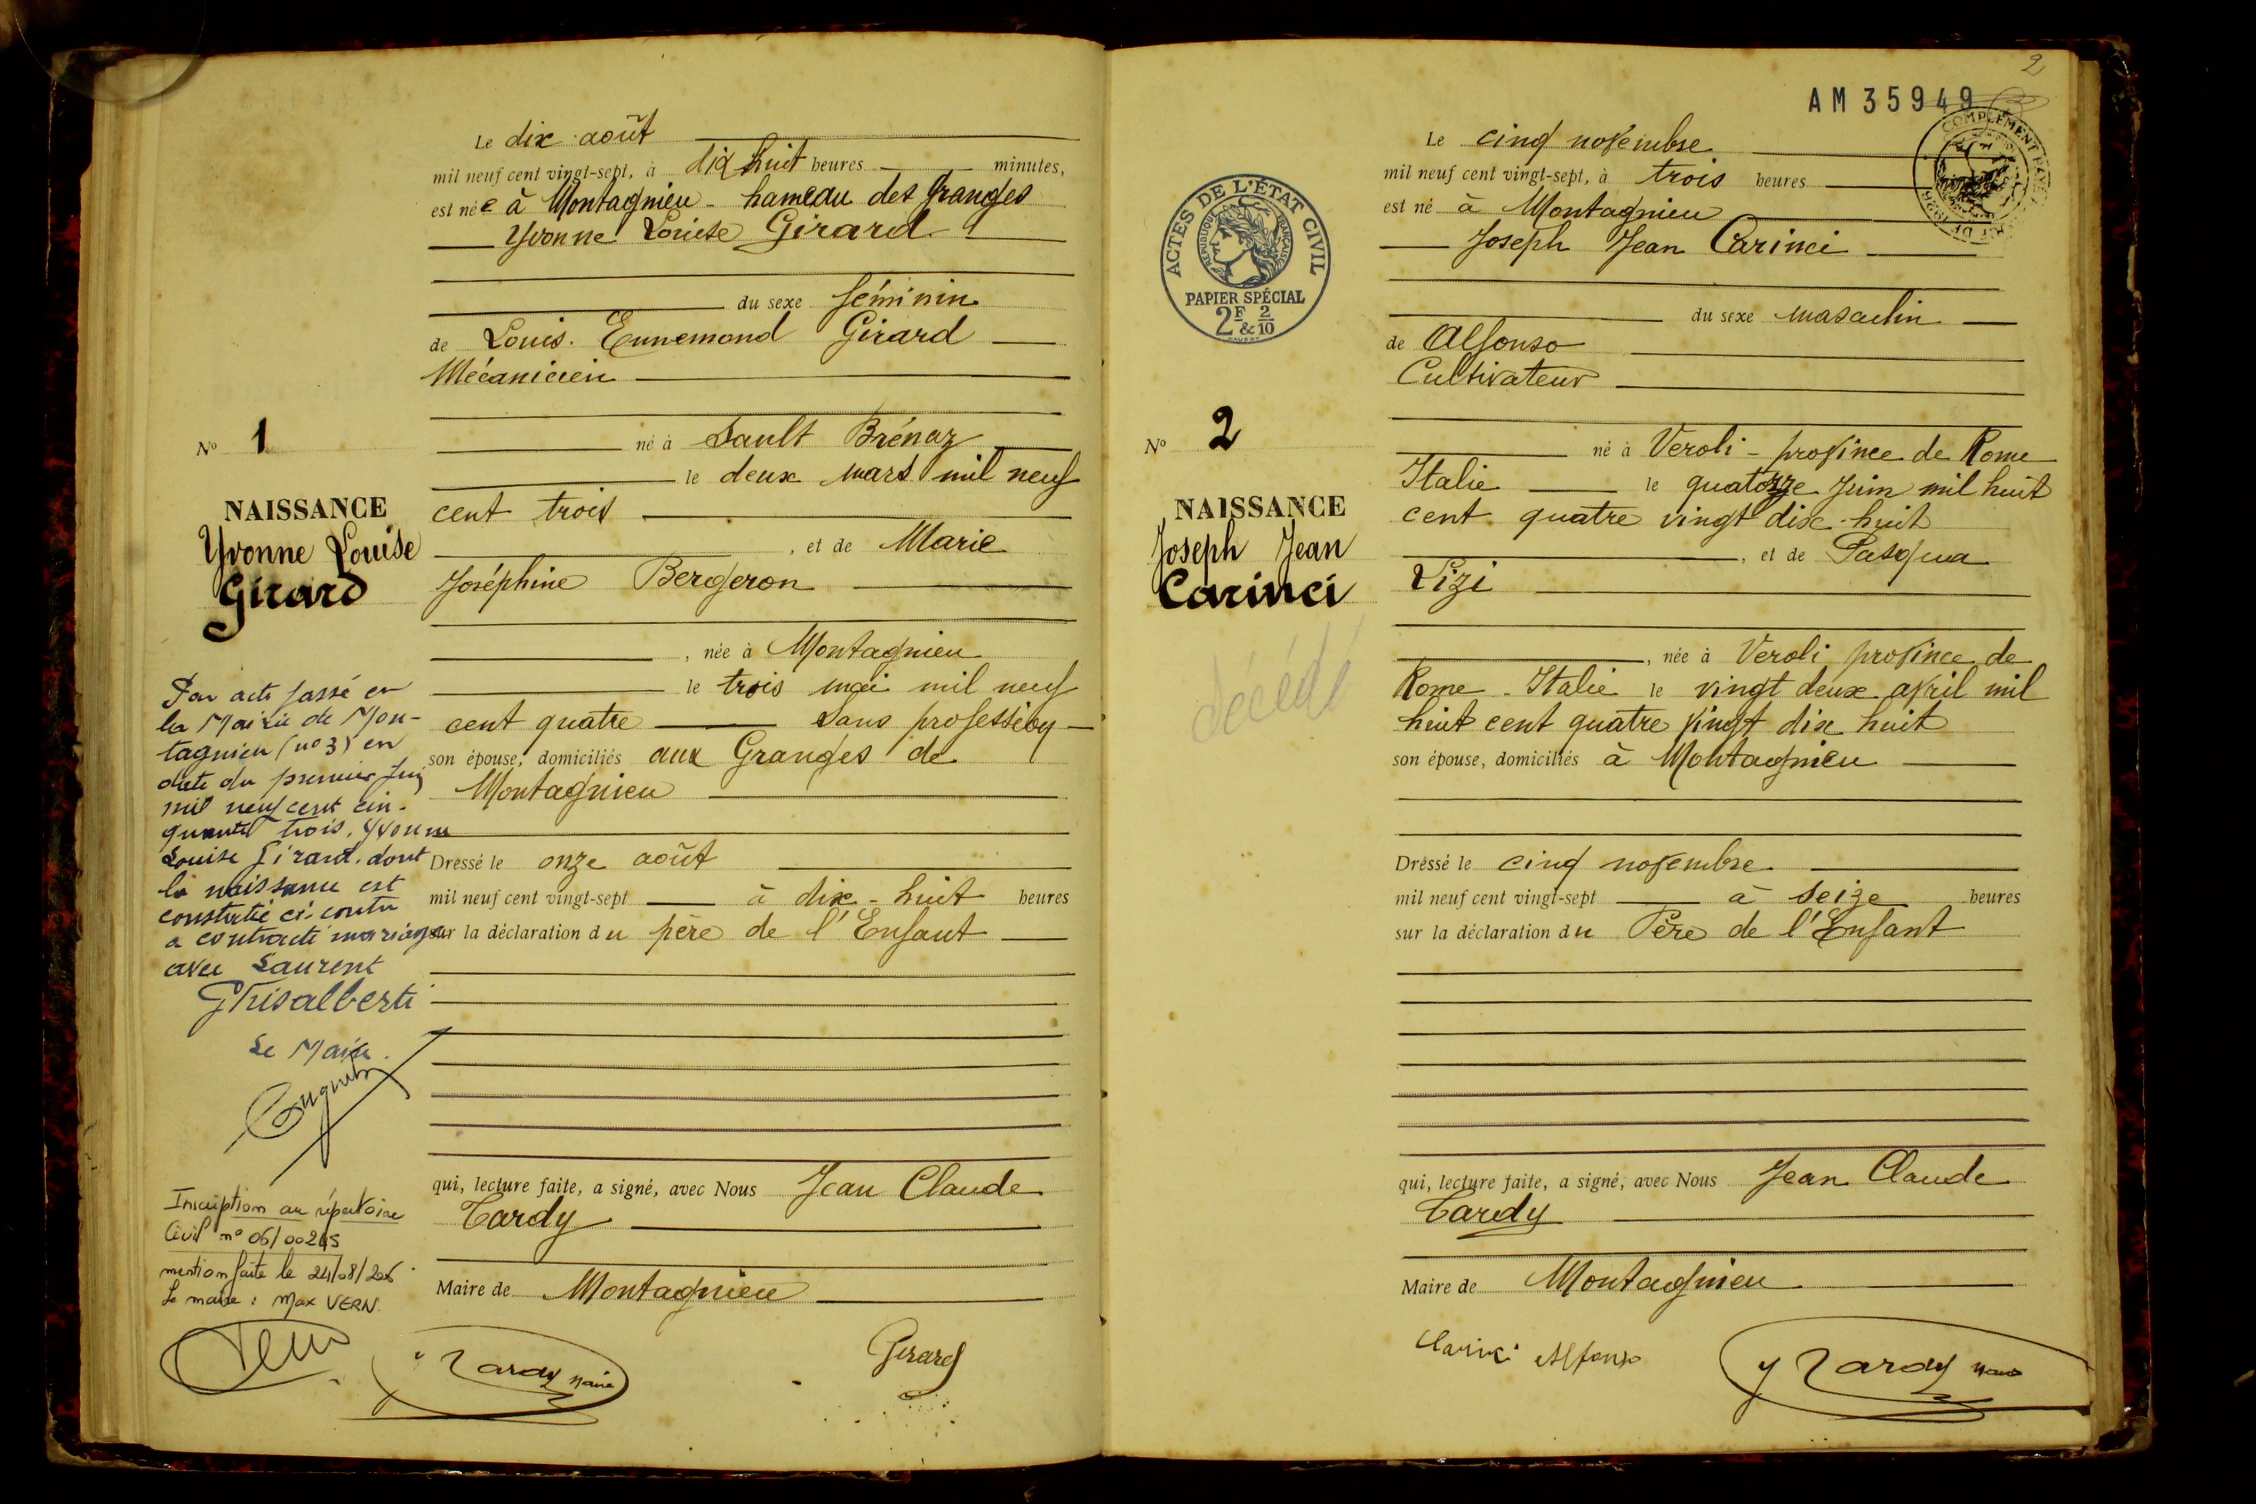 Le dix août
mil neuf cent vingt-sept, à dix huit heures minutes,
est née à Montagnieu - hameau des Granges
Yvonne Louise Girard
du sexe féminin
de Louis Ennemond Girard
Mécanicien
né à Sault Brénaz
le deux mars mil neuf
cent trois
, et de Marie
Joséphine Bergeron
, née à Montagnieu
le trois mai mil neuf
cent quatre sans profession
son épouse, domiciliés aux Granges de
Montagnieu
Dressé le onze août
mil neuf cent vingt-sept à dix-huit heures
sur la déclaration du père de l'Enfant
qui, lecture faite, a signé, avec Nous Jean Claude
Tardy
Maire de Montagnieu
Tardy maire
Girard
No 1
NAISSANCE
Yvonne Louise
Girard
Par acte passé en
la Mairie de Mon-
tagnieu (no 3) en
date du premier Juin
mil neuf cent cin-
quante trois, Yvonne
Louise Girard, dont
la naissance est
constatée ci-contre
a contracté mariage
avec Laurent
Ghisalberti
Le Maire
Inscription au répertoire
Civil no 06/00245
mention faite le 24/08/2006
Le maire : Max VERN.
2
AM 35949
COMPLÉMENT
ACTES DE L'ÉTAT CIVIL
RÉPUBLIQUE FRANÇAISE
PAPIER SPÉCIAL
2F & 2/10
No 2
NAISSANCE
Joseph Jean
Carinci
décédé
Le cinq novembre
mil neuf cent vingt-sept, à trois heures
est né à Montagnieu
Joseph Jean Carinci
du sexe masculin
de Alfonso
Cultivateur
né à Veroli - province de Rome
Italie le quatorze Juin mil huit
cent quatre vingt dix-huit
, et de Pasqua
Lizi
, née à Veroli province de
Rome - Italie le vingt deux avril mil
huit cent quatre vingt dix huit
son épouse, domiciliés à Montagnieu
Dressé le cinq novembre
mil neuf cent vingt-sept à seize heures
sur la déclaration du Père de l'Enfant
qui, lecture faite, a signé, avec Nous Jean Claude
Tardy
Maire de Montagnieu
Carinci Alfonso
Tardy maire